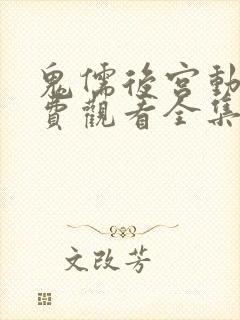 鬼儒後宮動
費觀看全集
文改芳